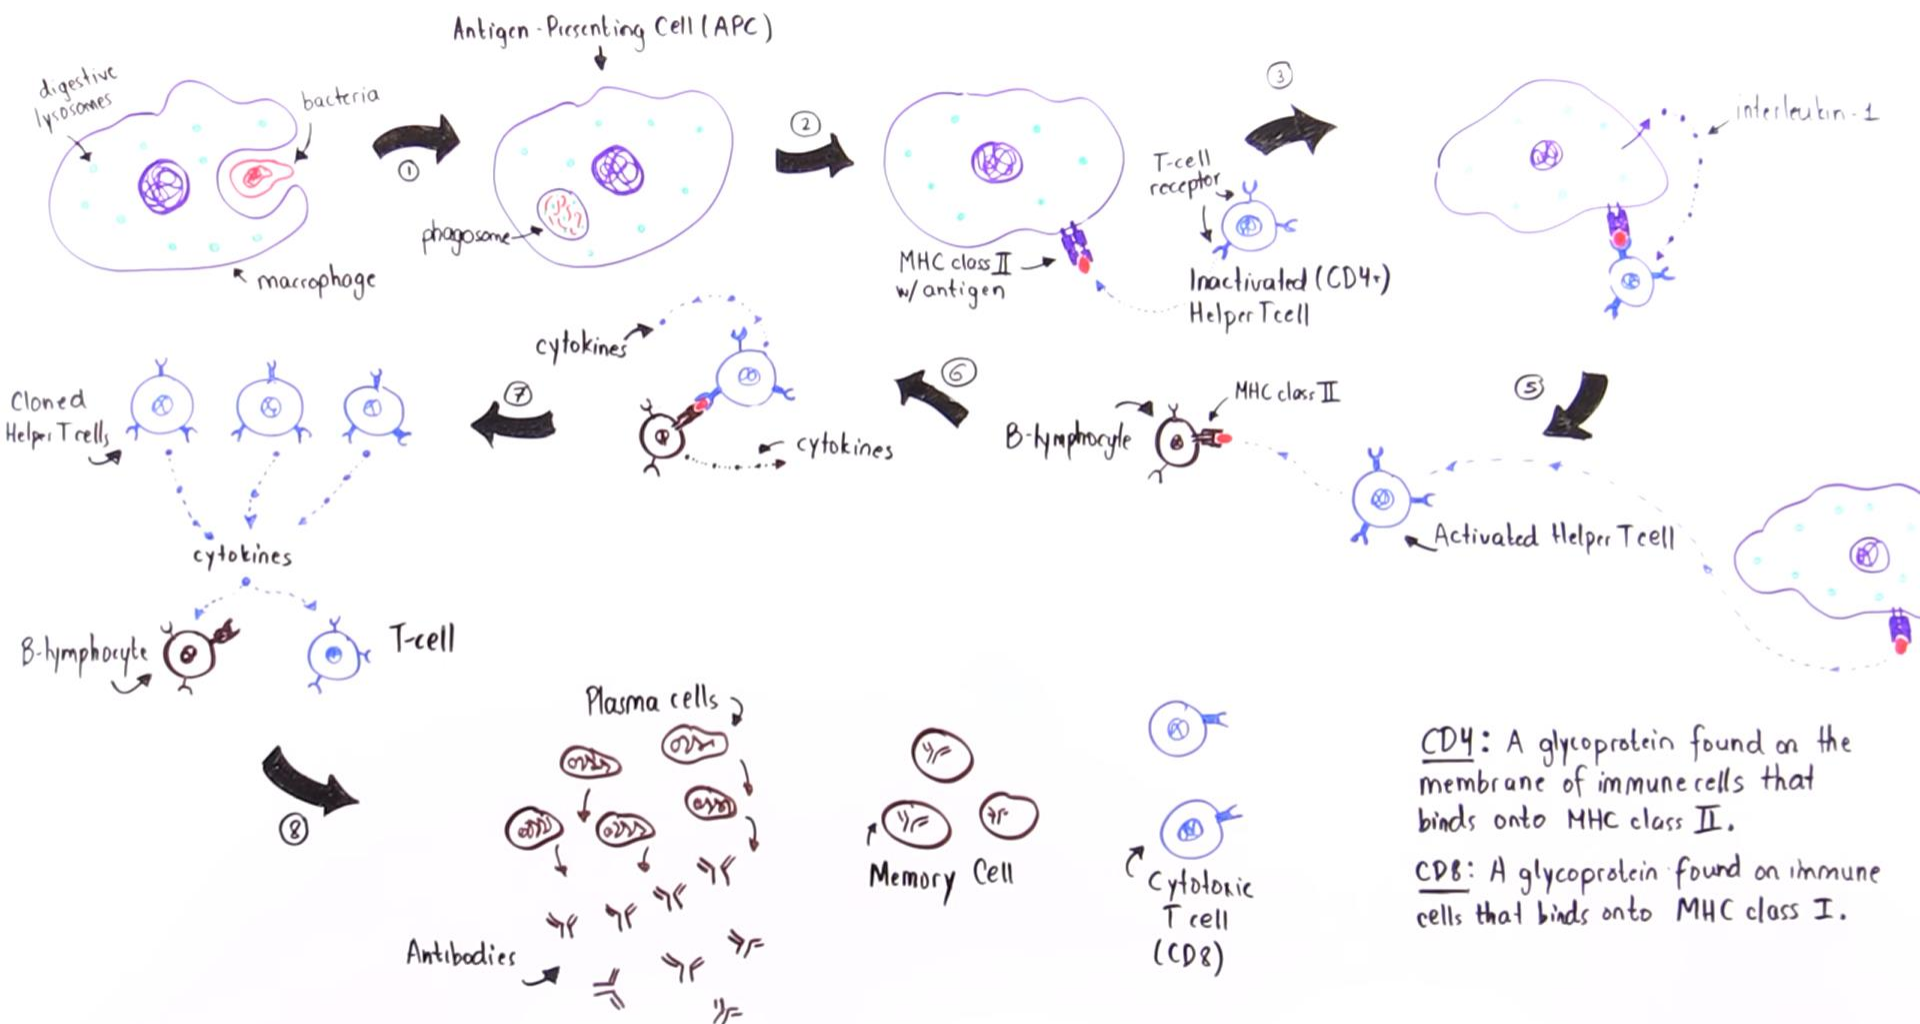 Antigen-Presenting Cell (APC)
digestive
lysosomes
bacteria
①
macrophage
phagosome
②
MHC class II
w/ antigen
T-cell
receptor
Inactivated (CD4+)
Helper T cell
③
interleukin-1
⑤
Activated Helper T cell
MHC class II
B-lymphocyte
⑥
cytokines
cytokines
⑦
Cloned
Helper T cells
cytokines
B-lymphocyte
T-cell
⑧
Plasma cells
Antibodies
Memory Cell
Cytotoxic
T cell
(CD8)
CD4: A glycoprotein found on the
membrane of immune cells that
binds onto MHC class II.
CD8: A glycoprotein found on immune
cells that binds onto MHC class I.